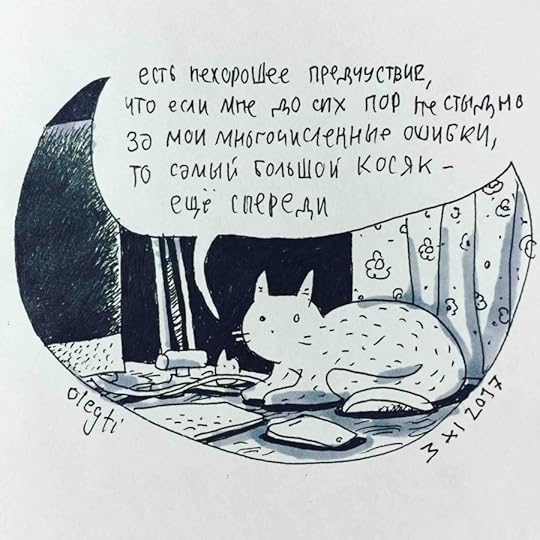 есть нехорошее предчуствие,
что если мне до сих пор не стыдно
за мои многочисленные ошибки,
то самый большой косяк –
ещё спереди
olegti
3 XI 2017